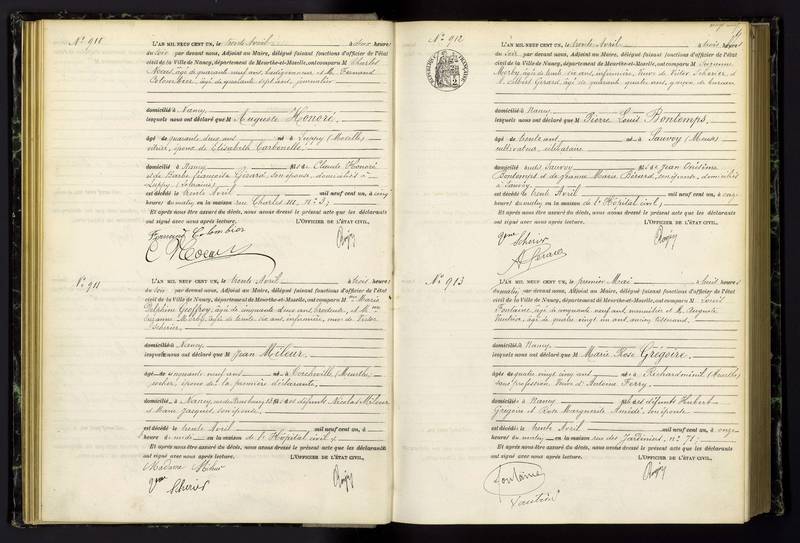 N° 910
L'AN MIL NEUF CENT UN, le trente Avril à deux heures
du soir par devant nous, Adjoint au Maire, délégué faisant fonctions d'officier de l'état
civil de la Ville de Nancy, département de Meurthe-et-Moselle, ont comparu M Charles
âgé de quarante neuf ans, et M. Fernand
Colombier, âgé de quarante sept ans, journalier
domiciliés à Nancy,
lesquels nous ont déclaré que M Auguste Honoré,
âgé de quarante deux ans né à Luppy (Moselle)
vitrier, époux de Elisabeth Carbonelle,
domicilié à Nancy fils de Claude Honoré
et de Barbe Girard, son épouse, domiciliés à
Luppy (Lorraine)
est décédé le trente Avril mil neuf cent un, à cinq
heures du matin, en la maison rue Charles III, n° 3;
Et après nous être assuré du décès, nous avons dressé le présent acte que les déclarants
ont signé avec nous après lecture. L'OFFICIER DE L'ÉTAT CIVIL,
Fernand Colombier
N° 911
L'AN MIL NEUF CENT UN, le trente Avril à trois heures
du soir par devant nous, Adjoint au Maire, délégué faisant fonctions d'officier de l'état
civil de la Ville de Nancy, département de Meurthe-et-Moselle, ont comparu Mme Marie
Delphine Geoffroy, âgée de cinquante deux ans, et Mme
Suzanne âgée de trente six ans, infirmière, veuve de Victor
Scherier,
domiciliés à Nancy,
lesquels nous ont déclaré que M Jean Mileur,
âgé de cinquante neuf ans né à (Meurthe)
cocher, époux de la première déclarante,
domicilié à Nancy, rue de Strasbourg fils des défunts Nicolas Mileur
et Marie Jacquot, son épouse,
est décédé le trente Avril mil neuf cent un, à
heures du en la maison de l'Hôpital civil;
Et après nous être assuré du décès, nous avons dressé le présent acte que les déclarants
ont signé avec nous après lecture. L'OFFICIER DE L'ÉTAT CIVIL,
Madame
Vve
Scherier
N° 912
RÉPUBLIQUE FRANÇAISE
L'AN MIL NEUF CENT UN, le trente Avril à trois heures
du soir par devant nous, Adjoint au Maire, délégué faisant fonctions d'officier de l'état
civil de la Ville de Nancy, département de Meurthe-et-Moselle, ont comparu Mme Suzanne
âgée de trente six ans, infirmière, veuve de Victor Scherier, et
M. Albert Girard, âgé de quarante quatre ans, garçon de bureau
domiciliés à Nancy
lesquels nous ont déclaré que M Pierre Louis Bontemps,
âgé de trente ans né à Sauvoy (Meuse)
cultivateur, célibataire
domicilié audit Sauvoy fils de Jean
Bontemps et de Jeanne Marie Bérard, son épouse, domiciliés
à Sauvoy,
est décédé le trente Avril mil neuf cent un, à onze
heures du matin, en la maison de l'Hôpital civil;
Et après nous être assuré du décès, nous avons dressé le présent acte que les déclarants
ont signé avec nous après lecture. L'OFFICIER DE L'ÉTAT CIVIL,
Vve
Scherier
A Girard
N° 913
L'AN MIL NEUF CENT UN, le premier Mai à huit heures
du matin, par devant nous, Adjoint au Maire, délégué faisant fonctions d'officier de l'état
civil de la Ville de Nancy, département de Meurthe-et-Moselle, ont comparu M Louis
Fontaine, âgé de cinquante neuf ans, menuisier et M. Auguste
Vautrin, âgé de quatre vingt un ans, ancien tisserand,
domiciliés à Nancy,
lesquels nous ont déclaré que M Marie Rose Grégoire,
âgée de quatre vingt cinq ans née à Réchardménil (Meurthe)
sans profession, veuve d'Antoine Ferry,
domiciliée à Nancy, fille des défunts Hubert
Grégoire et Rose Marguerite son épouse
est décédée le trente Avril mil neuf cent un, à onze
heures du matin, en la maison rue des Jardiniers, n° 71;
Et après nous être assuré du décès, nous avons dressé le présent acte que les déclarants
ont signé avec nous après lecture. L'OFFICIER DE L'ÉTAT CIVIL,
Fontaine
Vautrin